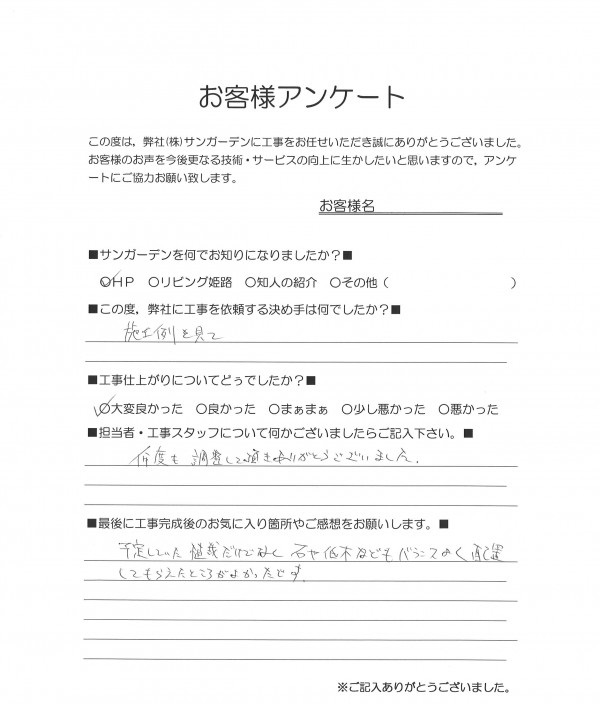 お客様アンケート
この度は，弊社(株)サンガーデンに工事をお任せいただき誠にありがとうございました。
お客様のお声を今後更なる技術・サービスの向上に生かしたいと思いますので，アンケ
ートにご協力お願い致します。
お客様名
■サンガーデンを何でお知りになりましたか？■
○HP ○リビング姫路 ○知人の紹介 ○その他（ ）
■この度，弊社に工事を依頼する決め手は何でしたか？■
施工例を見て
■工事仕上がりについてどぅでしたか？■
○大変良かった ○良かった ○まぁまぁ ○少し悪かった ○悪かった
■担当者・工事スタッフについて何かございましたらご記入下さい。■
何度も調整して頂きありがとうございました.
■最後に工事完成後のお気に入り箇所やご感想をお願いします。■
予定していた植栽だけでなく 石や低木などもバランスよく配置
してもらえたところがよかったです.
※ご記入ありがとうございました。